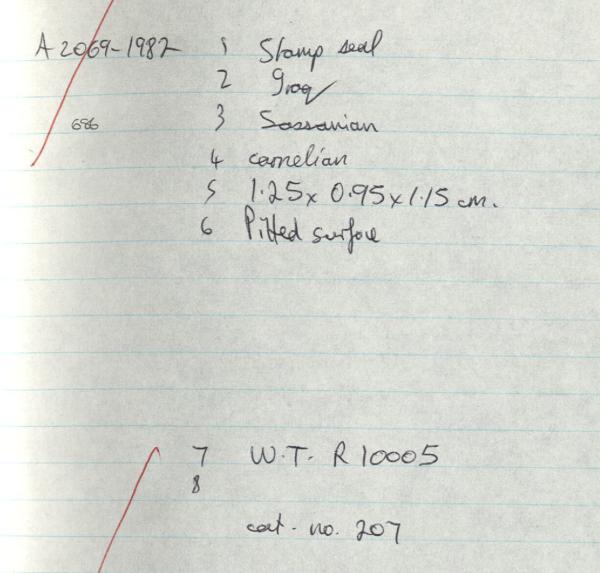 A 2069-1982 1 Stamp seal
2 Iraq
686 3 Sassanian
4 carnelian
5 1.25 x 0.95 x 1.15 cm.
6 Pitted surface
7 W.T. R 10005
8
cat. no. 207